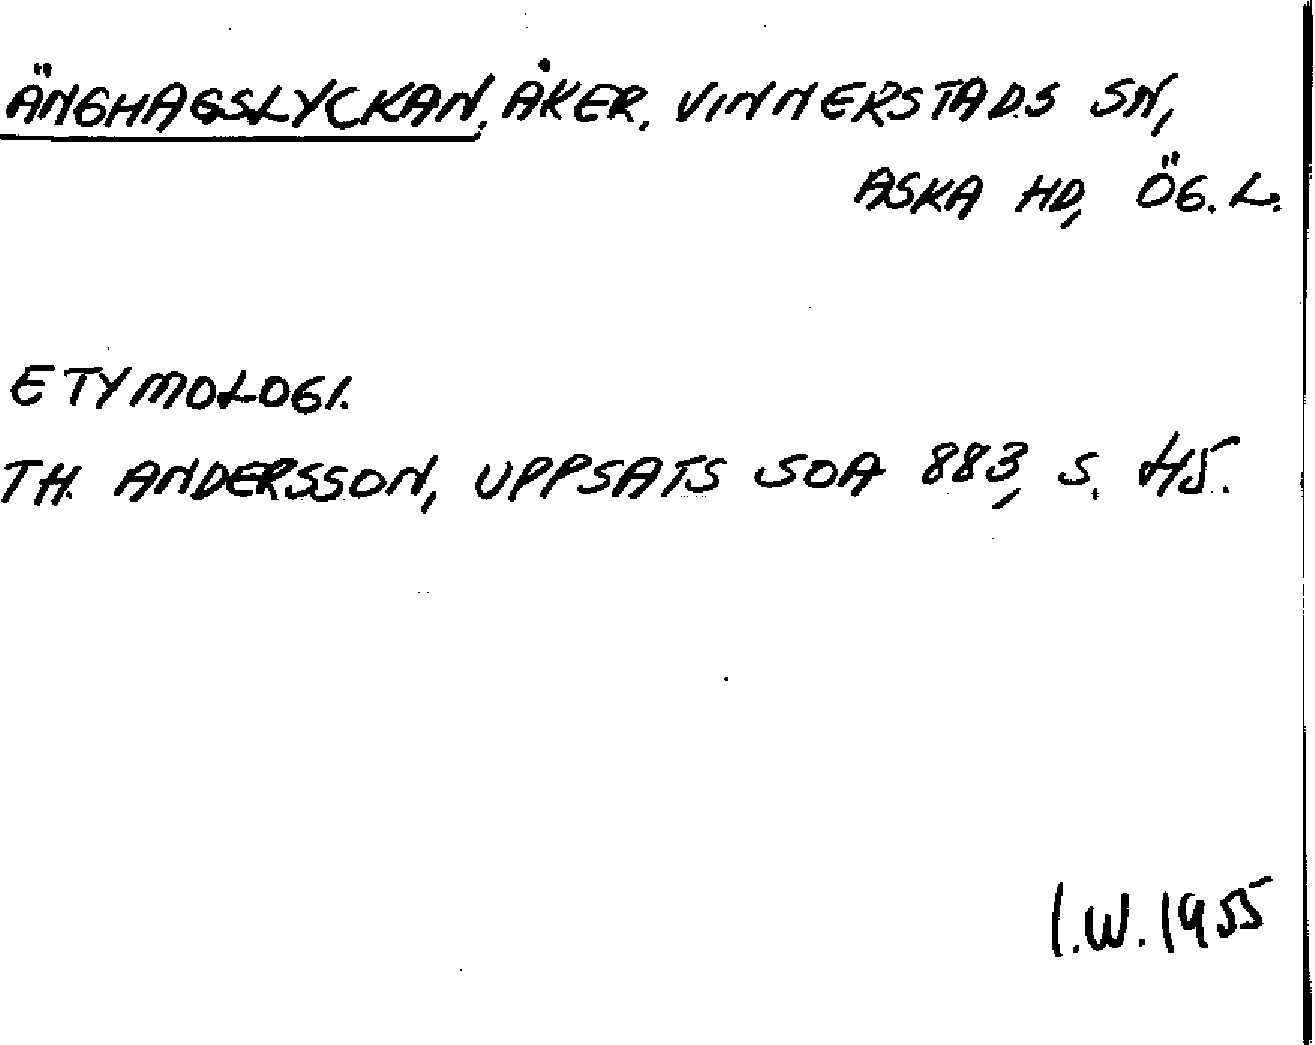 ÄNGHAGSLYCKAN, ÅKER, VINNERSTADS SN,
ASKA HD, ÖG. L.
ETYMOLOGI.
TH. ANDERSSON, UPPSATS SOA 883, S. 45.
I.W. 1955